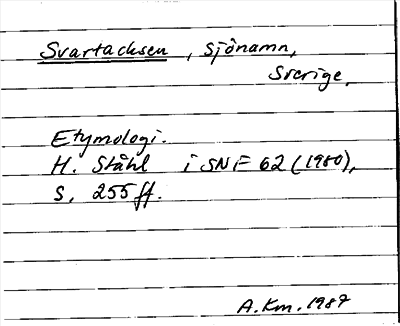 Svartacksen, Sjönamn,
Sverige.
Etymologi.
H. Ståhl i SNF 62 (1980),
S. 255 ff.
A. Km. 1987